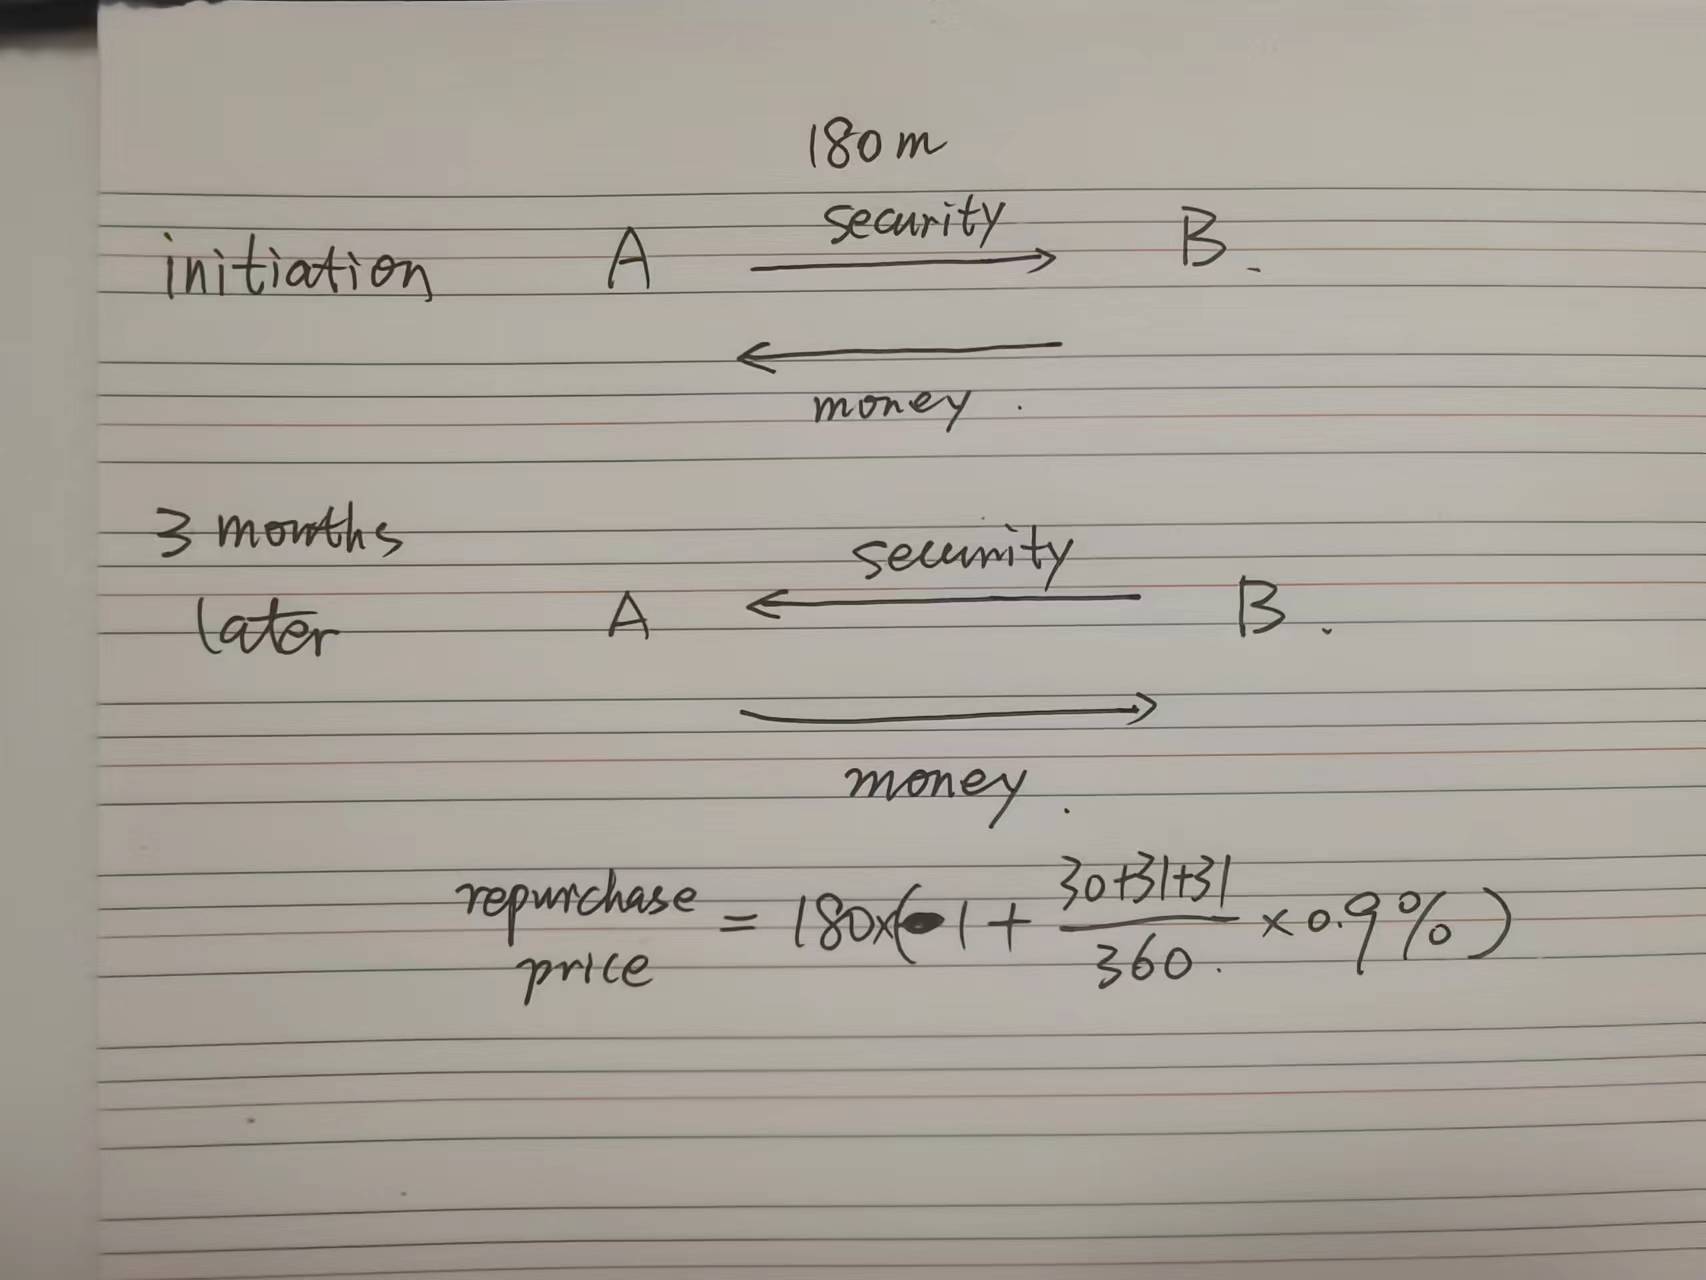 180 m
security
initiation A B.
money.
3 months
security
later A B.
money.
30+31+31
repurchase = 180×( 1 + × 0.9%)
price 360.